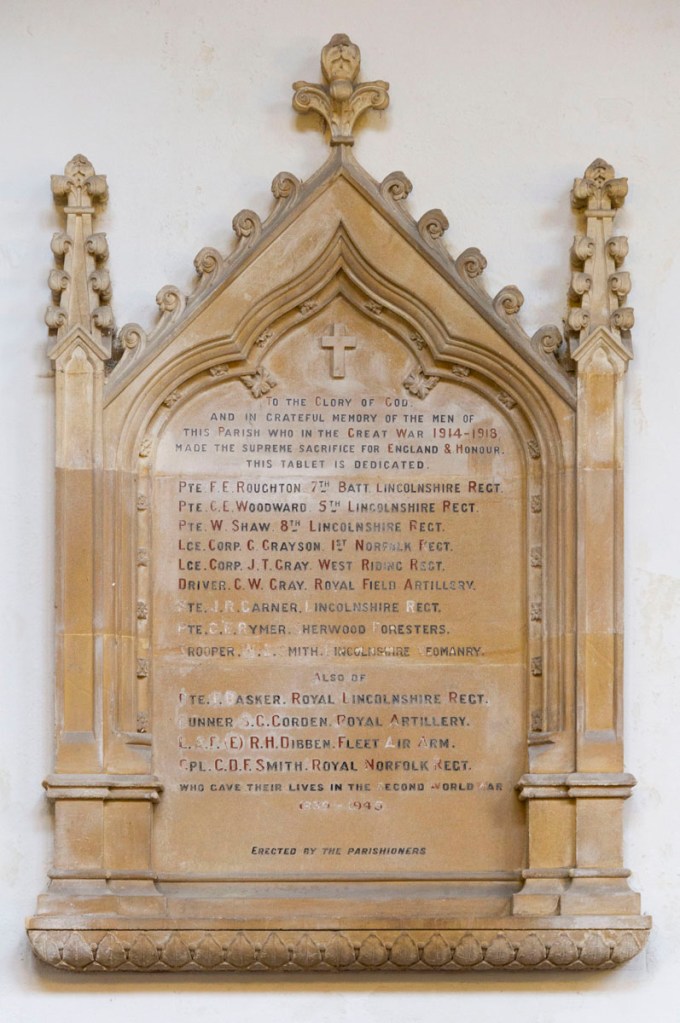 To the Glory of God.
and in grateful memory of the men of
this Parish who in the Great War 1914-1918
made the supreme sacrifice for England & Honour.
this tablet is dedicated.
Pte. F.E. Roughton. 7th Batt. Lincolnshire Regt.
Pte. C.E. Woodward. 5th Lincolnshire Regt.
Pte. W. Shaw. 8th Lincolnshire Regt.
Lce. Corp. C. Grayson. 1st Norfolk Regt.
Lce. Corp. J.T. Gray. West Riding Regt.
Driver. C.W. Gray. Royal Field Artillery.
Pte. J.R. Garner. Lincolnshire Regt.
Pte. Rymer. Sherwood Foresters.
Trooper. Smith. Lincolnshire Yeomanry.
Also of
Pte. Basker. Royal Lincolnshire Regt.
Gunner S.C. Corden. Royal Artillery.
(E) R.H. Dibben. Fleet Air Arm.
Cpl. C.D.F. Smith. Royal Norfolk Regt.
who gave their lives in the Second World War
Erected by the parishioners